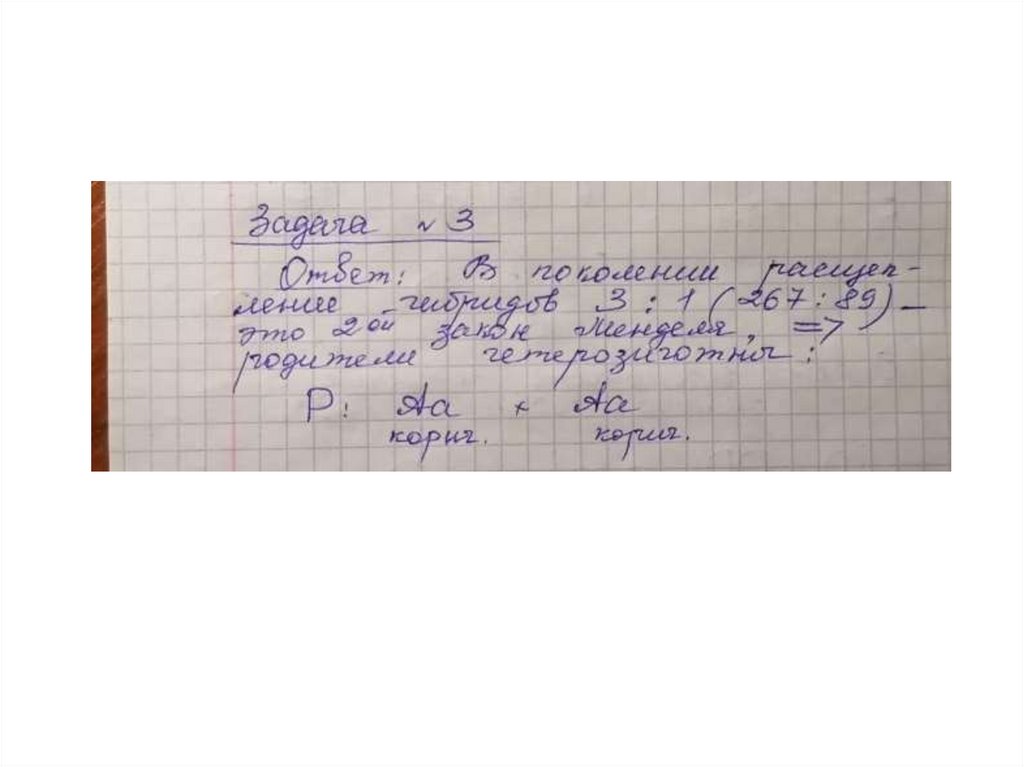 Задача № 3
Ответ: В поколении расщеп-
ление гибридов 3 : 1 (267 : 89) –
это 2ой закон Менделя, =>
родители гетерозиготны :
P: Aa × Aa
корич. корич.